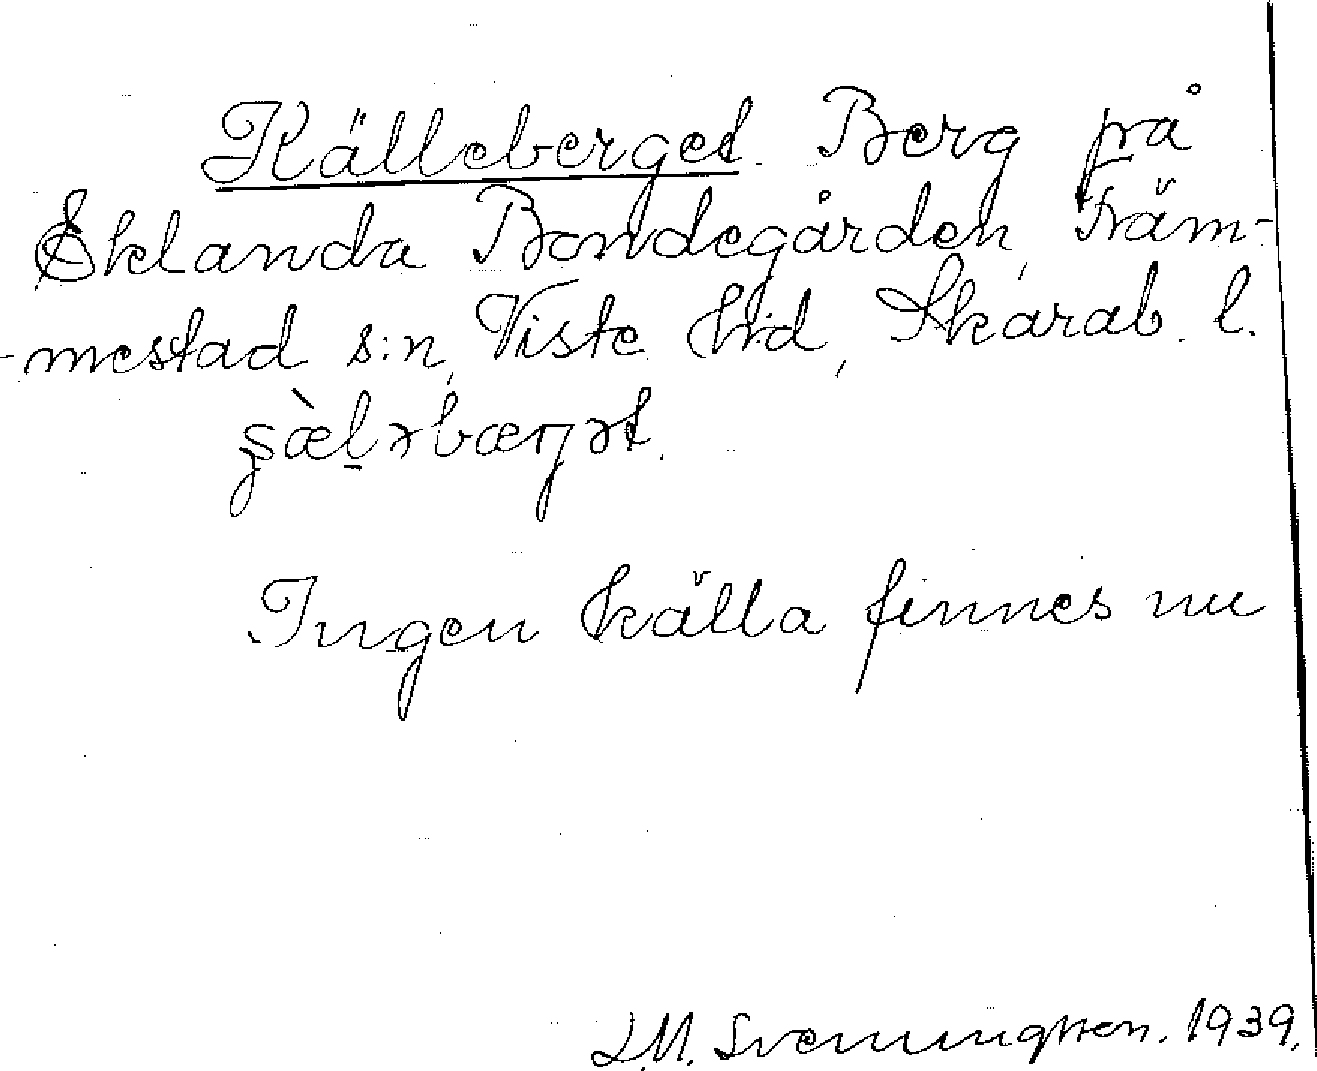 Källeberget. Berg på
Eklanda Bondegården, Träm-
mestad s:n, Viste hd, Skarab. l.
Ingen källa finnes nu
L.M. Svenungsson. 1939.